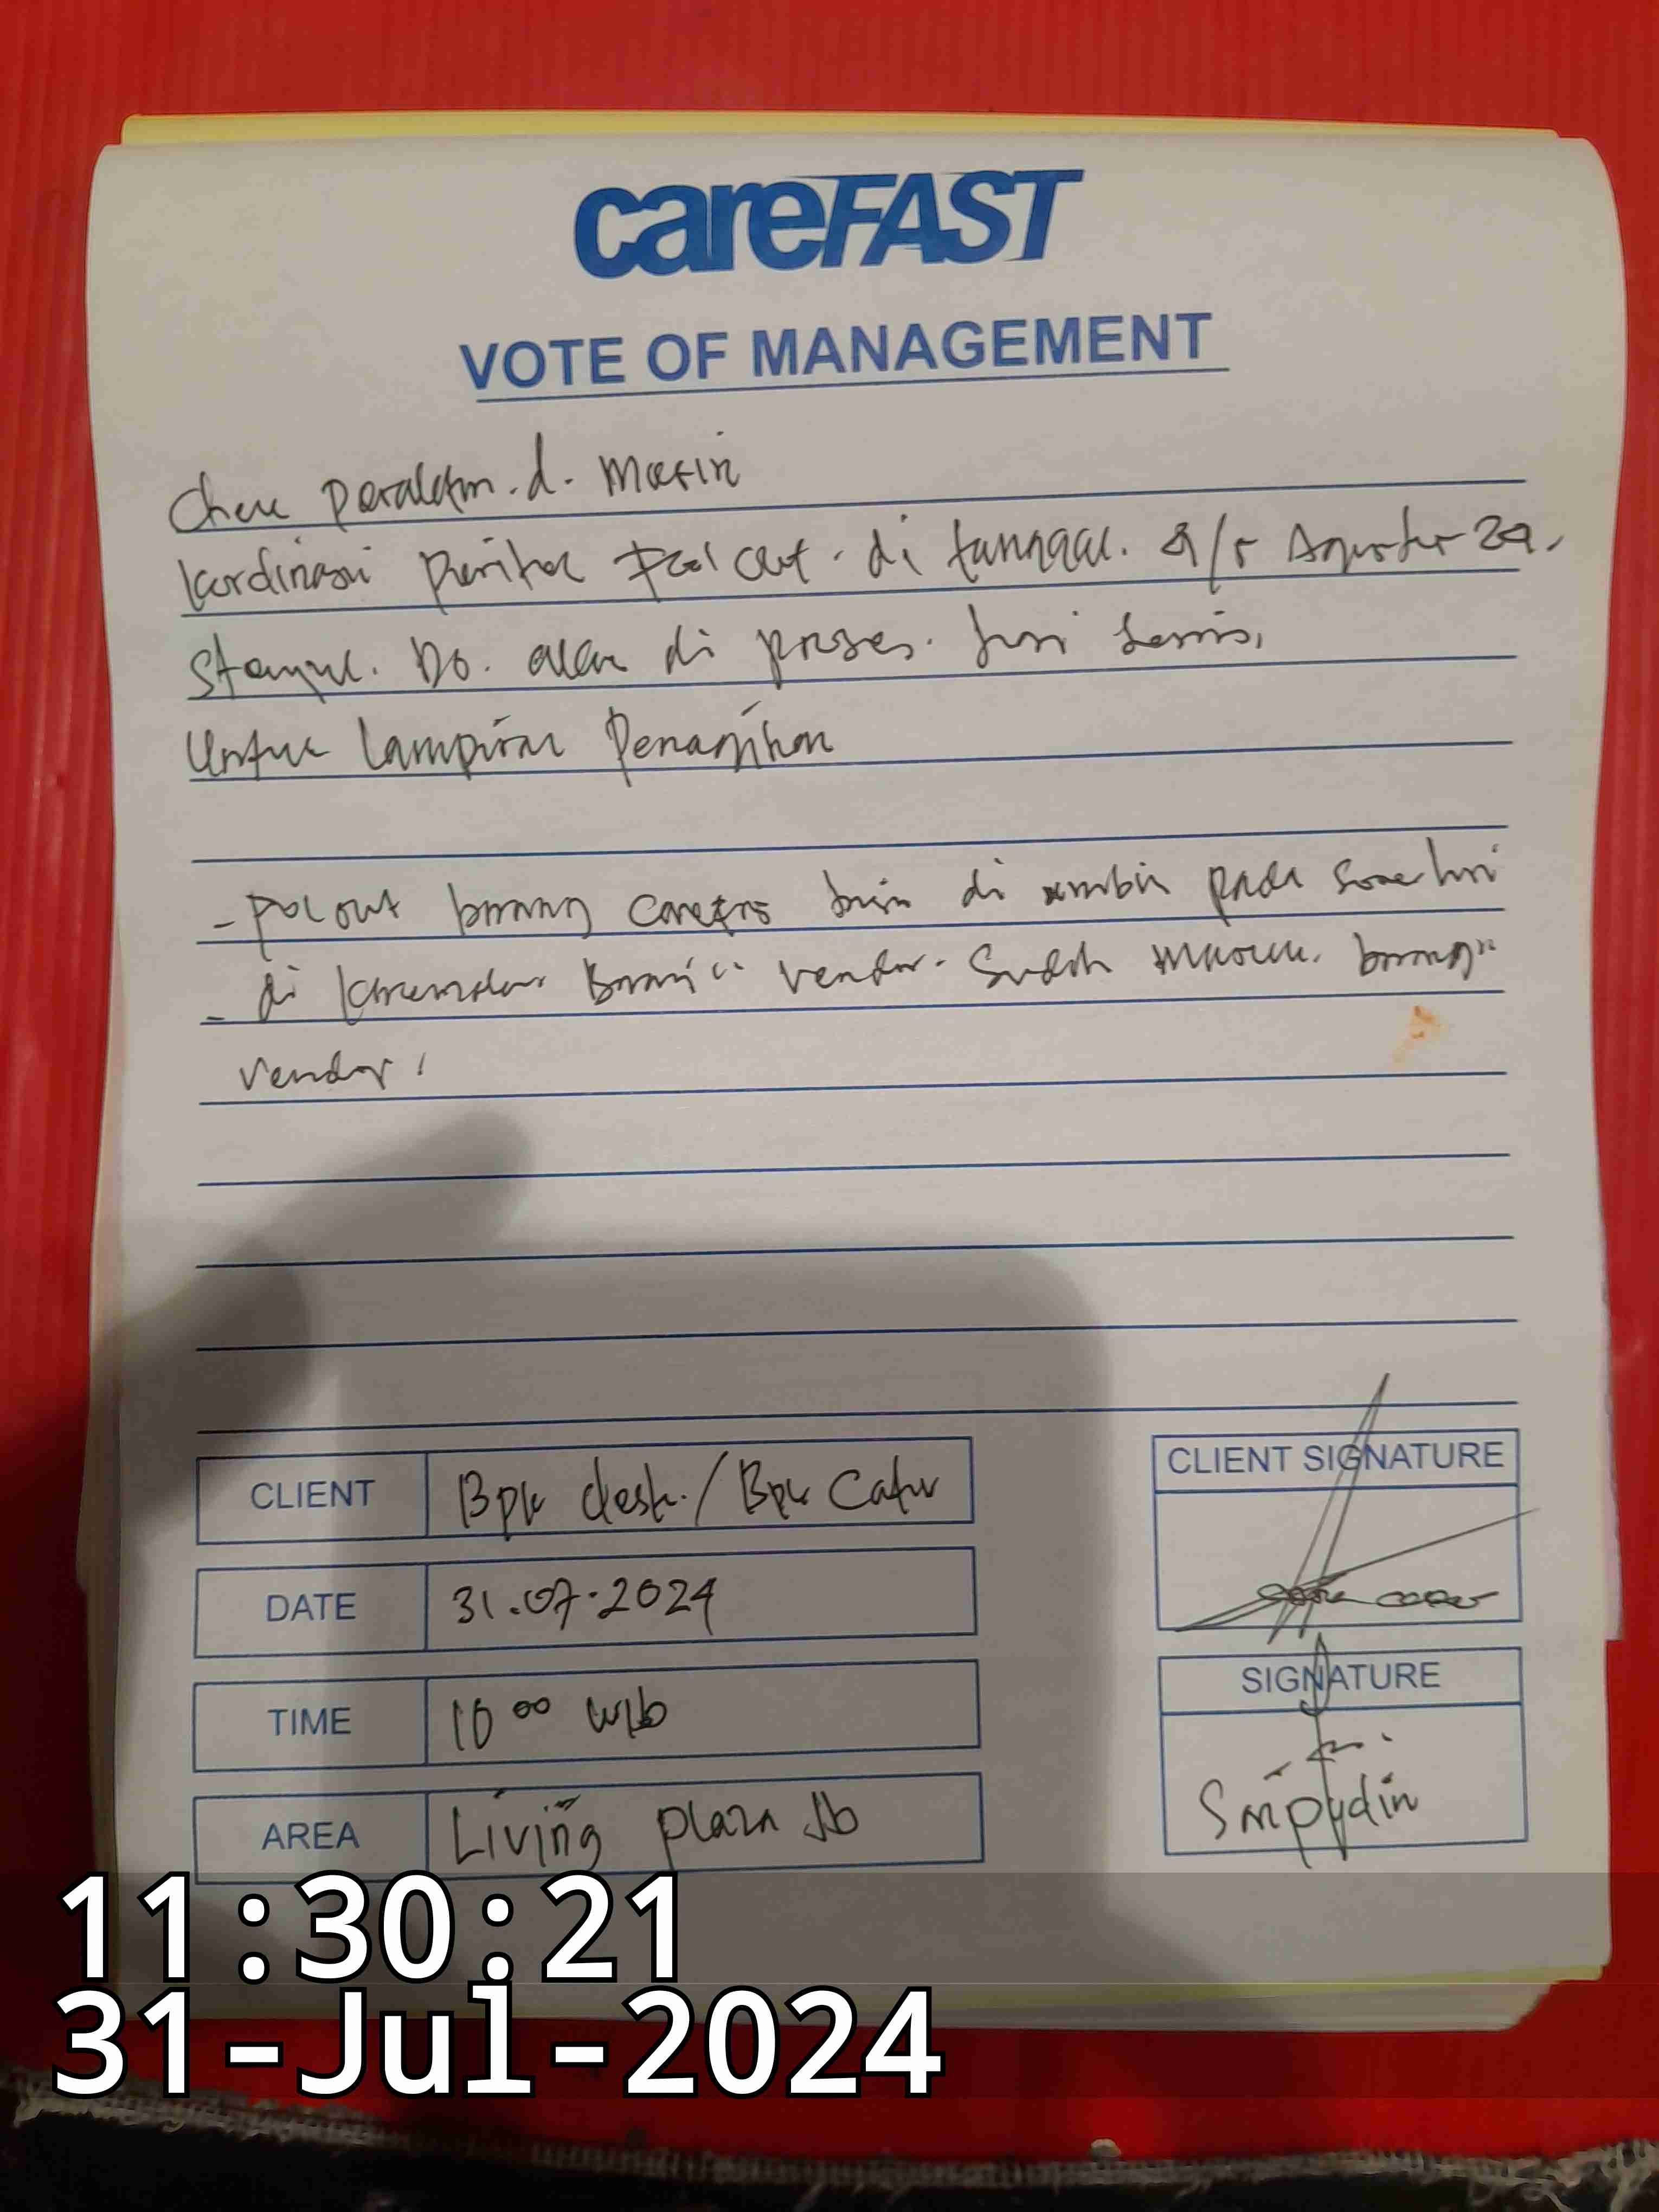 careFAST
VOTE OF MANAGEMENT
Chek Peralatan. d. Mesin
Kordinasi di tanggal. 4/5 Agustus 24.
Stempel. Do. akan di proses. hari Senin,
Untuk lampiran Penagihan
- Pol out barang Carefast bisa di ambil pada hari
- di Barang" vendor. Sudah masuk. barang"
vendor.
CLIENT
Bpk desta. / Bpk Catur
DATE
31.07.2024
TIME
10 00 wib
AREA
Living plaza Jb
CLIENT SIGNATURE
SIGNATURE
11:30:21
31-Jul-2024